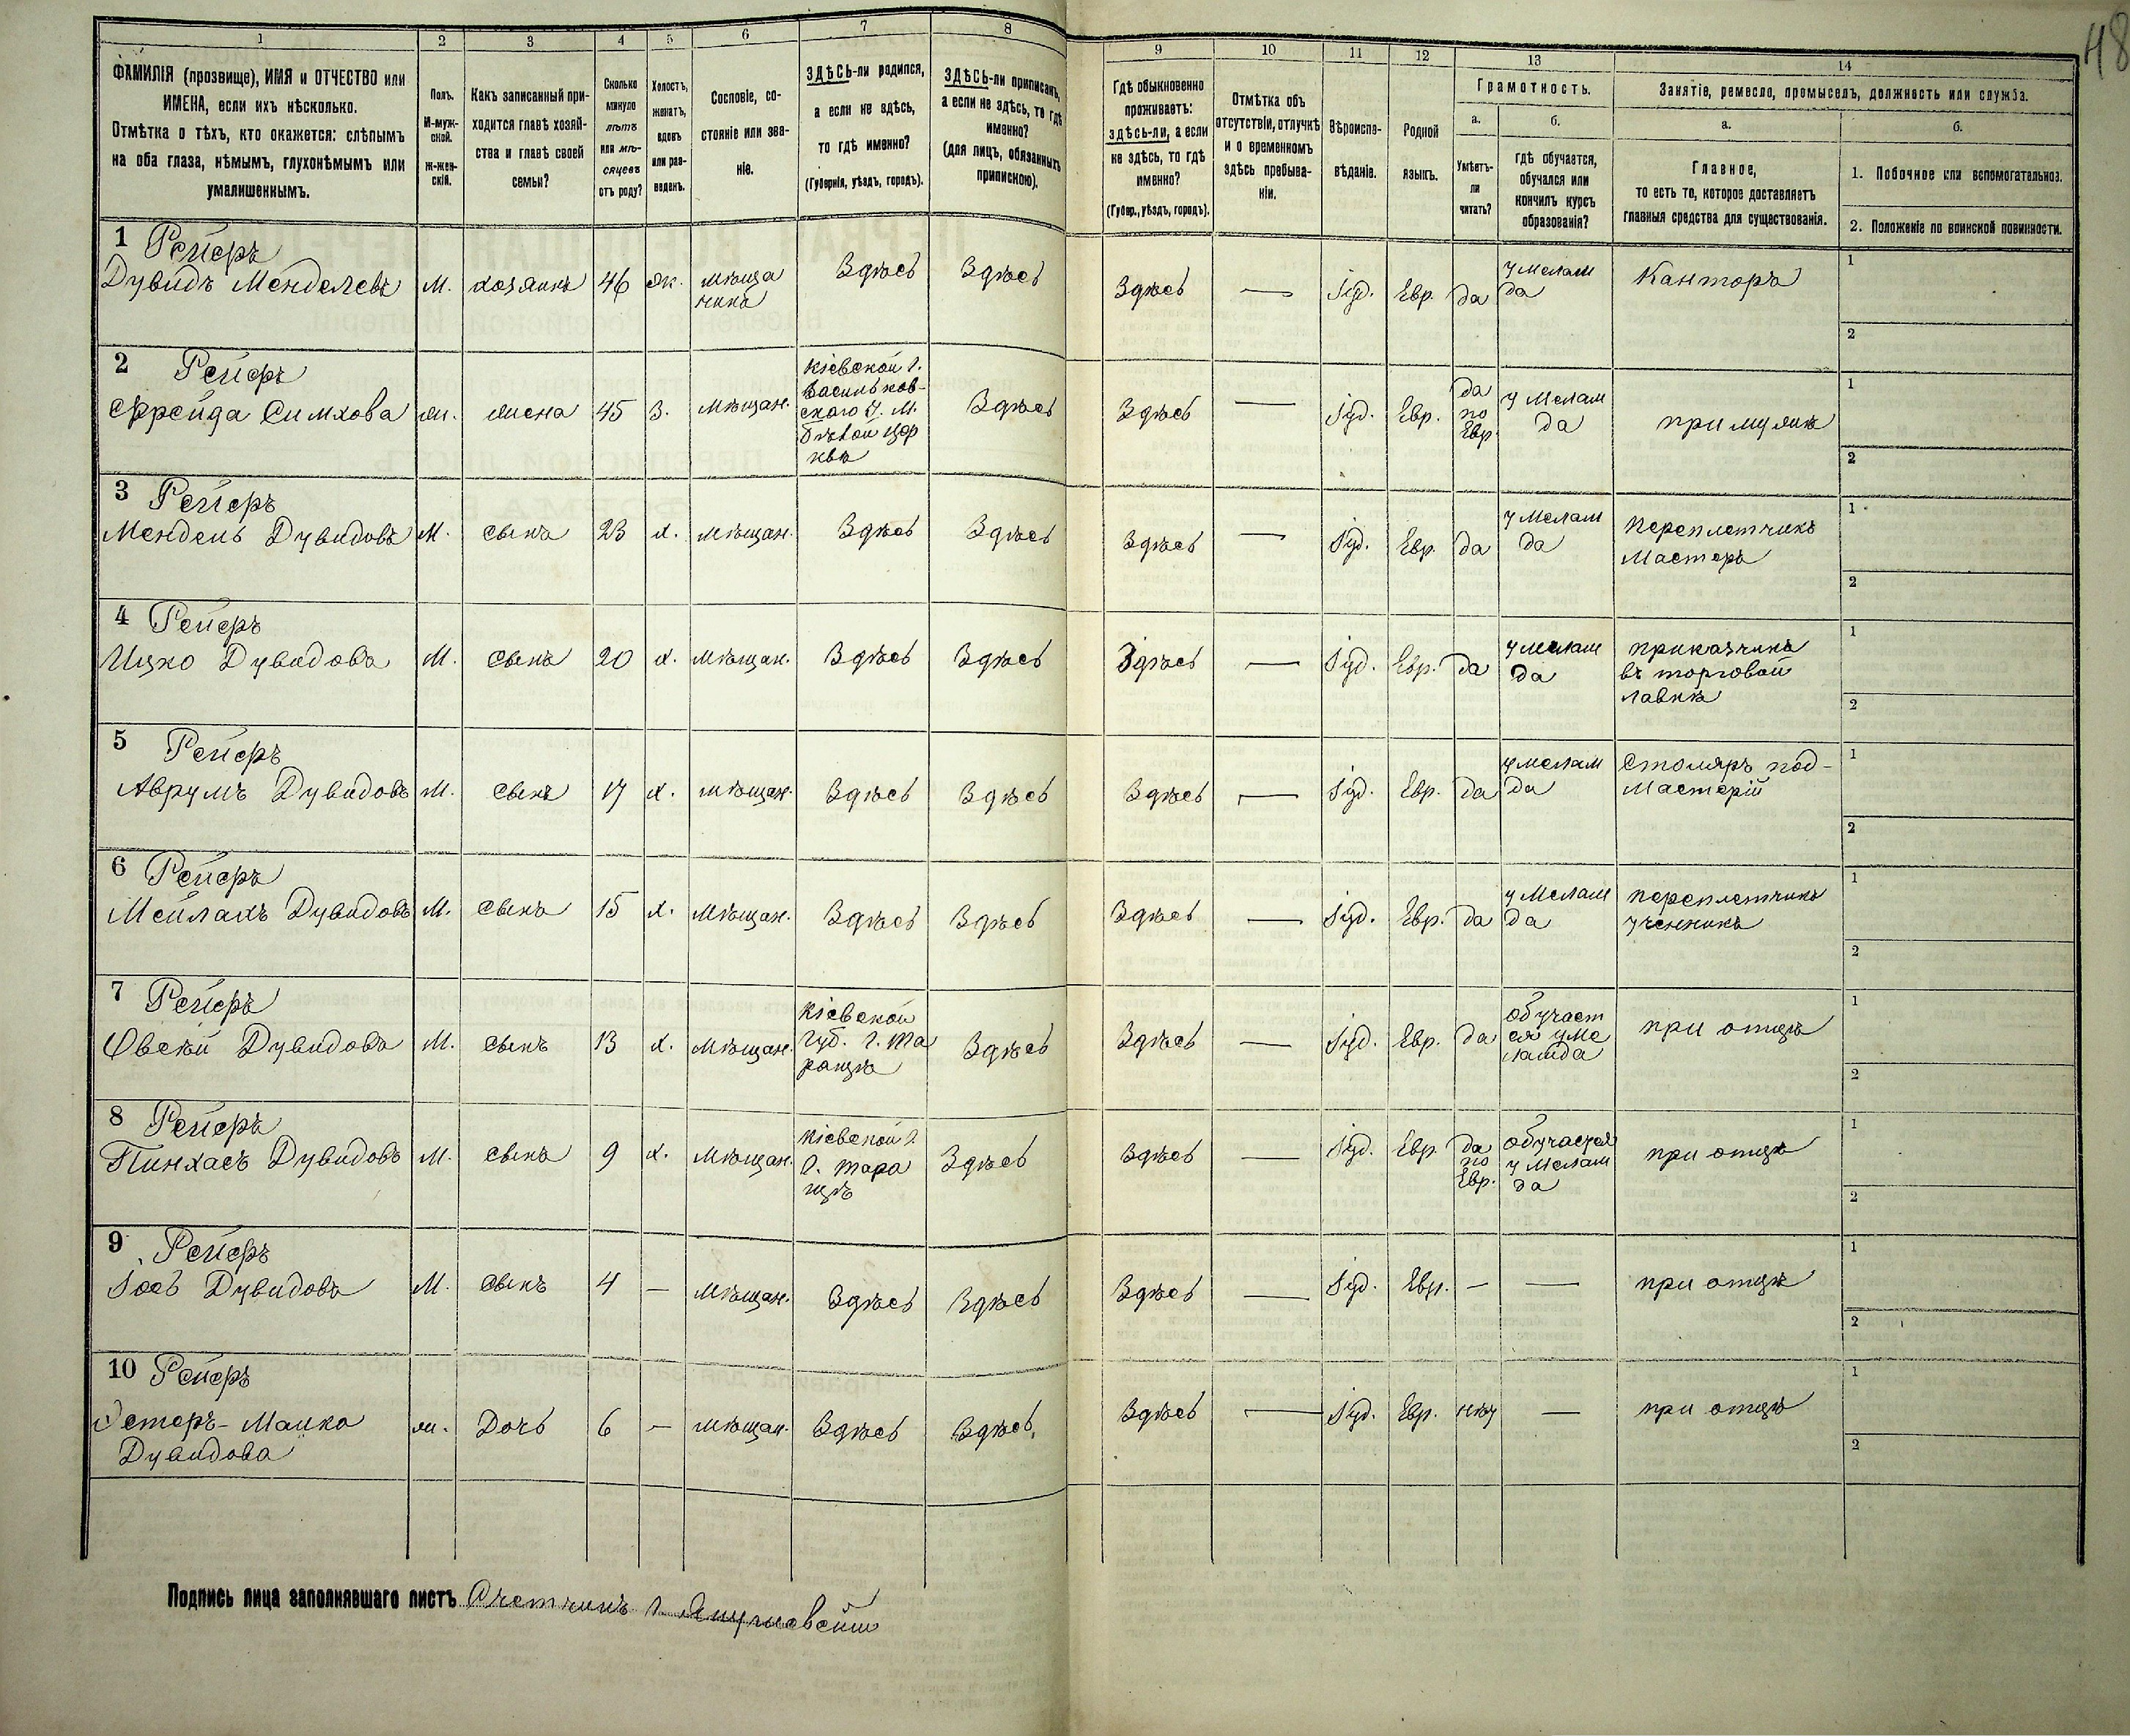 48
1 2 3 4 5 6 7 8 9 10 11 12 13 14
ФАМИЛІЯ (прозвище), ИМЯ и ОТЧЕСТВО или
ИМЕНА, если ихъ нѣсколько.
Отмѣтка о тѣхъ, кто окажется: слѣпымъ
на оба глаза, нѣмымъ, глухонѣмымъ или
умалишеннымъ.
Полъ.
М-муж-
ской.
ж-жен-
скій.
Какъ записанный при-
ходится главѣ хозяй-
ства и главѣ своей
семьи?
Сколько
минуло
лѣтъ
или мѣ-
сяцевъ
отъ роду?
Холостъ,
женатъ,
вдовъ
или раз-
веденъ.
Сословіе, со-
стояніе или зва-
ніе.
ЗДѢСЬ-ли родился,
а если не здѣсь,
то гдѣ именно?
(Губернія, уѣздъ, городъ).
ЗДѢСЬ-ли приписанъ,
а если не здѣсь, то гдѣ
именно?
(для лицъ, обязанныхъ
припискою).
Гдѣ обыкновенно
проживаетъ:
здѣсь-ли, а если
не здѣсь, то гдѣ
именно?
(Губер., уѣздъ, городъ).
Отмѣтка объ
отсутствіи, отлучкѣ
и о временномъ
здѣсь пребыва-
ніи.
Вѣроиспо-
вѣданіе.
Родной
языкъ.
Грамотность.
а.
Умѣетъ-
ли
читать?
б.
гдѣ обучается,
обучался или
кончилъ курсъ
образованія?
Занятіе, ремесло, промыселъ, должность или служба.
а.
Главное,
то есть то, которое доставляетъ
главныя средства для существованія.
б.
1. Побочное или вспомогательное.
2. Положеніе по воинской повинности.
1 Рейеръ
Дувидъ Менделевъ М. хозяинъ 46 ж. мѣща Здѣсь Здѣсь Здѣсь — Іуд. Евр. да у мелам Канторъ 1
нинъ да
2
2 Рейеръ
Фрейда Симхова ж. жена 45 З. мѣщан. Кіевской г. Здѣсь Здѣсь — Іуд. Евр. да у мелам при мужѣ 1
Васильков- по да
скаго у. м. Евр.
Бѣлой Цер
квѣ
2
3 Рейеръ
Мендель Дувидовъ М. сынъ 23 х. мѣщан. Здѣсь Здѣсь Здѣсь — Іуд. Евр. да у мелам переплетчикъ 1
да мастеръ
2
4 Рейеръ
Ицко Дувидовъ М. сынъ 20 х. мѣщан. Здѣсь Здѣсь Здѣсь — Іуд. Евр. да у мелам приказчикъ 1
да въ торговой
лавкѣ
2
5 Рейеръ
Аврумъ Дувидовъ М. сынъ 17 х. мѣщан. Здѣсь Здѣсь Здѣсь — Іуд. Евр. да у мелам столяръ под- 1
да мастерій
2
6 Рейеръ
Мейлахъ Дувидовъ М. сынъ 15 х. мѣщан. Здѣсь Здѣсь Здѣсь — Іуд. Евр. да у мелам переплетчикъ 1
да ученикъ
2
7 Рейеръ
Овсѣй Дувидовъ М. сынъ 13 х. мѣщан. Кіевской Здѣсь Здѣсь — Іуд. Евр. да обучает при отцѣ 1
губ. г. Та ся у ме
ращѣ ламда
2
8 Рейеръ
Пинхасъ Дувидовъ М. сынъ 9 х. мѣщан. Кіевской г. Здѣсь Здѣсь — Іуд. Евр. да обучается при отцѣ 1
г. Тара по у мелам
щѣ Евр. да
2
9 Рейеръ
Іось Дувидовъ М. сынъ 4 — мѣщан. Здѣсь Здѣсь Здѣсь — Іуд. Евр. — — при отцѣ 1
2
10 Рейеръ
Эстеръ-Малка ж. Дочь 6 — мѣщан. Здѣсь Здѣсь Здѣсь — Іуд. Евр. нѣт — при отцѣ 1
Дувидова
2
Подпись лица заполнявшаго листъ Счетчикъ